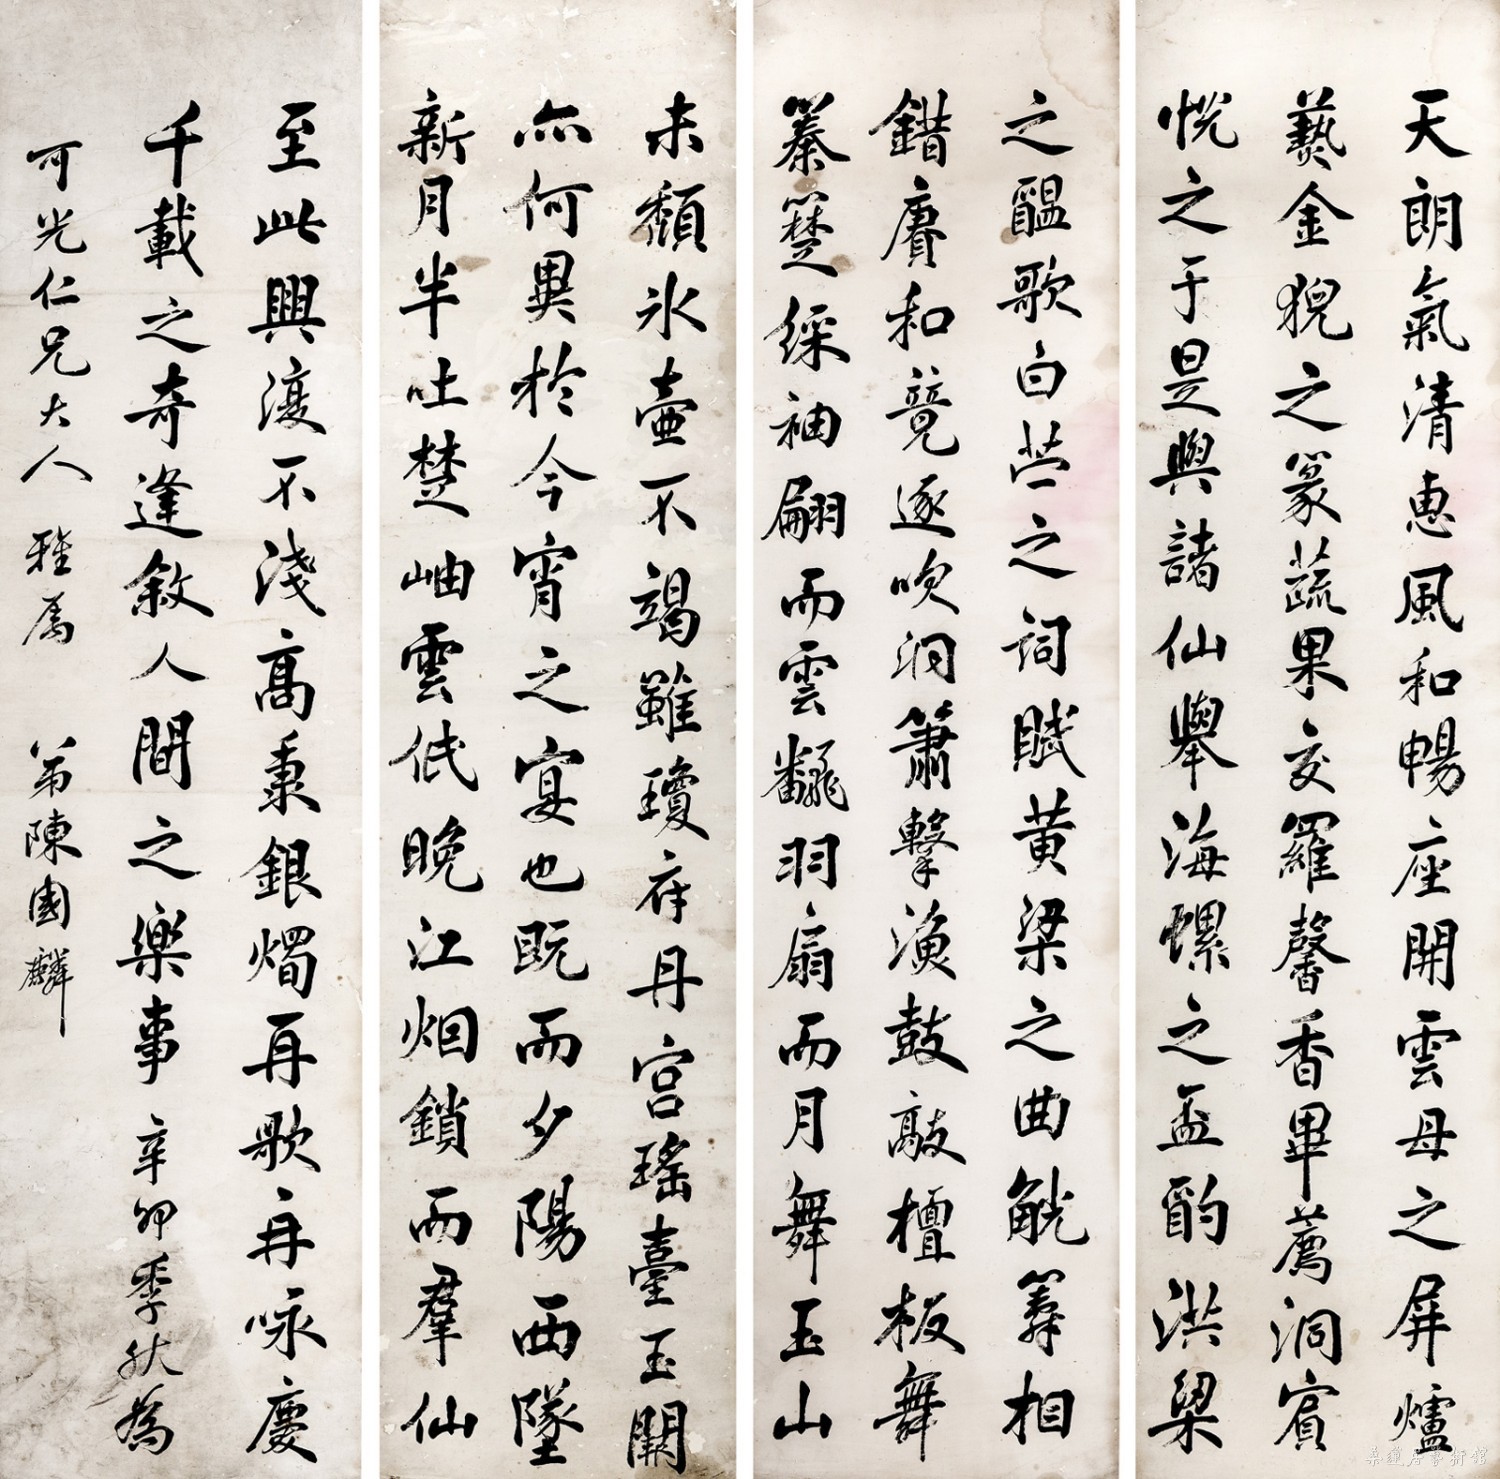 天朗氣清惠風和暢座開雲母之屏爐
爇金猊之篆蔬果交羅馨香畢薦洞賓
悅之于是與諸仙舉海螺之盃酌洪梁
之醖歌白苧之詞賦黄梁之曲觥籌相
錯賡和競逐吹洞簫擊漁鼓敲檀板舞
秦箏綵袖翩而雲翻羽扇而月舞玉山
未頹氷壷不竭雖瓊府丹宫瑤臺玉闕
亦何異於今宵之宴也既而夕陽西墜
新月半吐楚岫雲低晚江烟鎖而羣仙
至此興復不淺高秉銀燭再歌再咏慶
千載之奇逢敘人間之樂事辛卯季秋為
可光仁兄大人 雅属 弟陳國麟